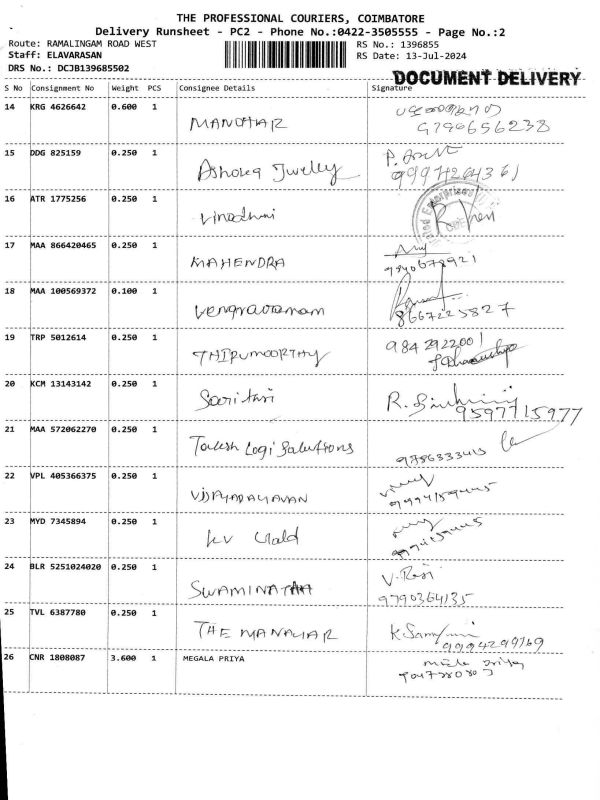 THE PROFESSIONAL COURIERS, COIMBATORE
Delivery Runsheet - PC2 - Phone No.:0422-3505555 - Page No.:2
Route: RAMALINGAM ROAD WEST RS No.: 1396855
Staff: ELAVARASAN RS Date: 13-Jul-2024
DRS No.: DCJB139685502
DOCUMENT DELIVERY
S No Consignment No Weight PCS Consignee Details Signature
14 KRG 4626642 0.600 1
MANOHAR 9790656238
15 DDG 825159 0.250 1
Ashoka Jwelley
16 ATR 1775256 0.250 1
17 MAA 866420465 0.250 1
MAHENDRA 9840678921
18 MAA 100569372 0.100 1
8667225827
19 TRP 5012614 0.250 1
THIRUMOORTHY 9842922001
20 KCM 13143142 0.250 1
R. 9597715977
21 MAA 572062270 0.250 1
Logi Solutions 9786333413
22 VPL 405366375 0.250 1
VIJAYARAGAVAN
23 MYD 7345894 0.250 1
24 BLR 5251024020 0.250 1
SWAMINATHA V. Ravi
9790364135
25 TVL 6387780 0.250 1
THE MANAGER 9994299769
26 CNR 1808087 3.600 1 MEGALA PRIYA